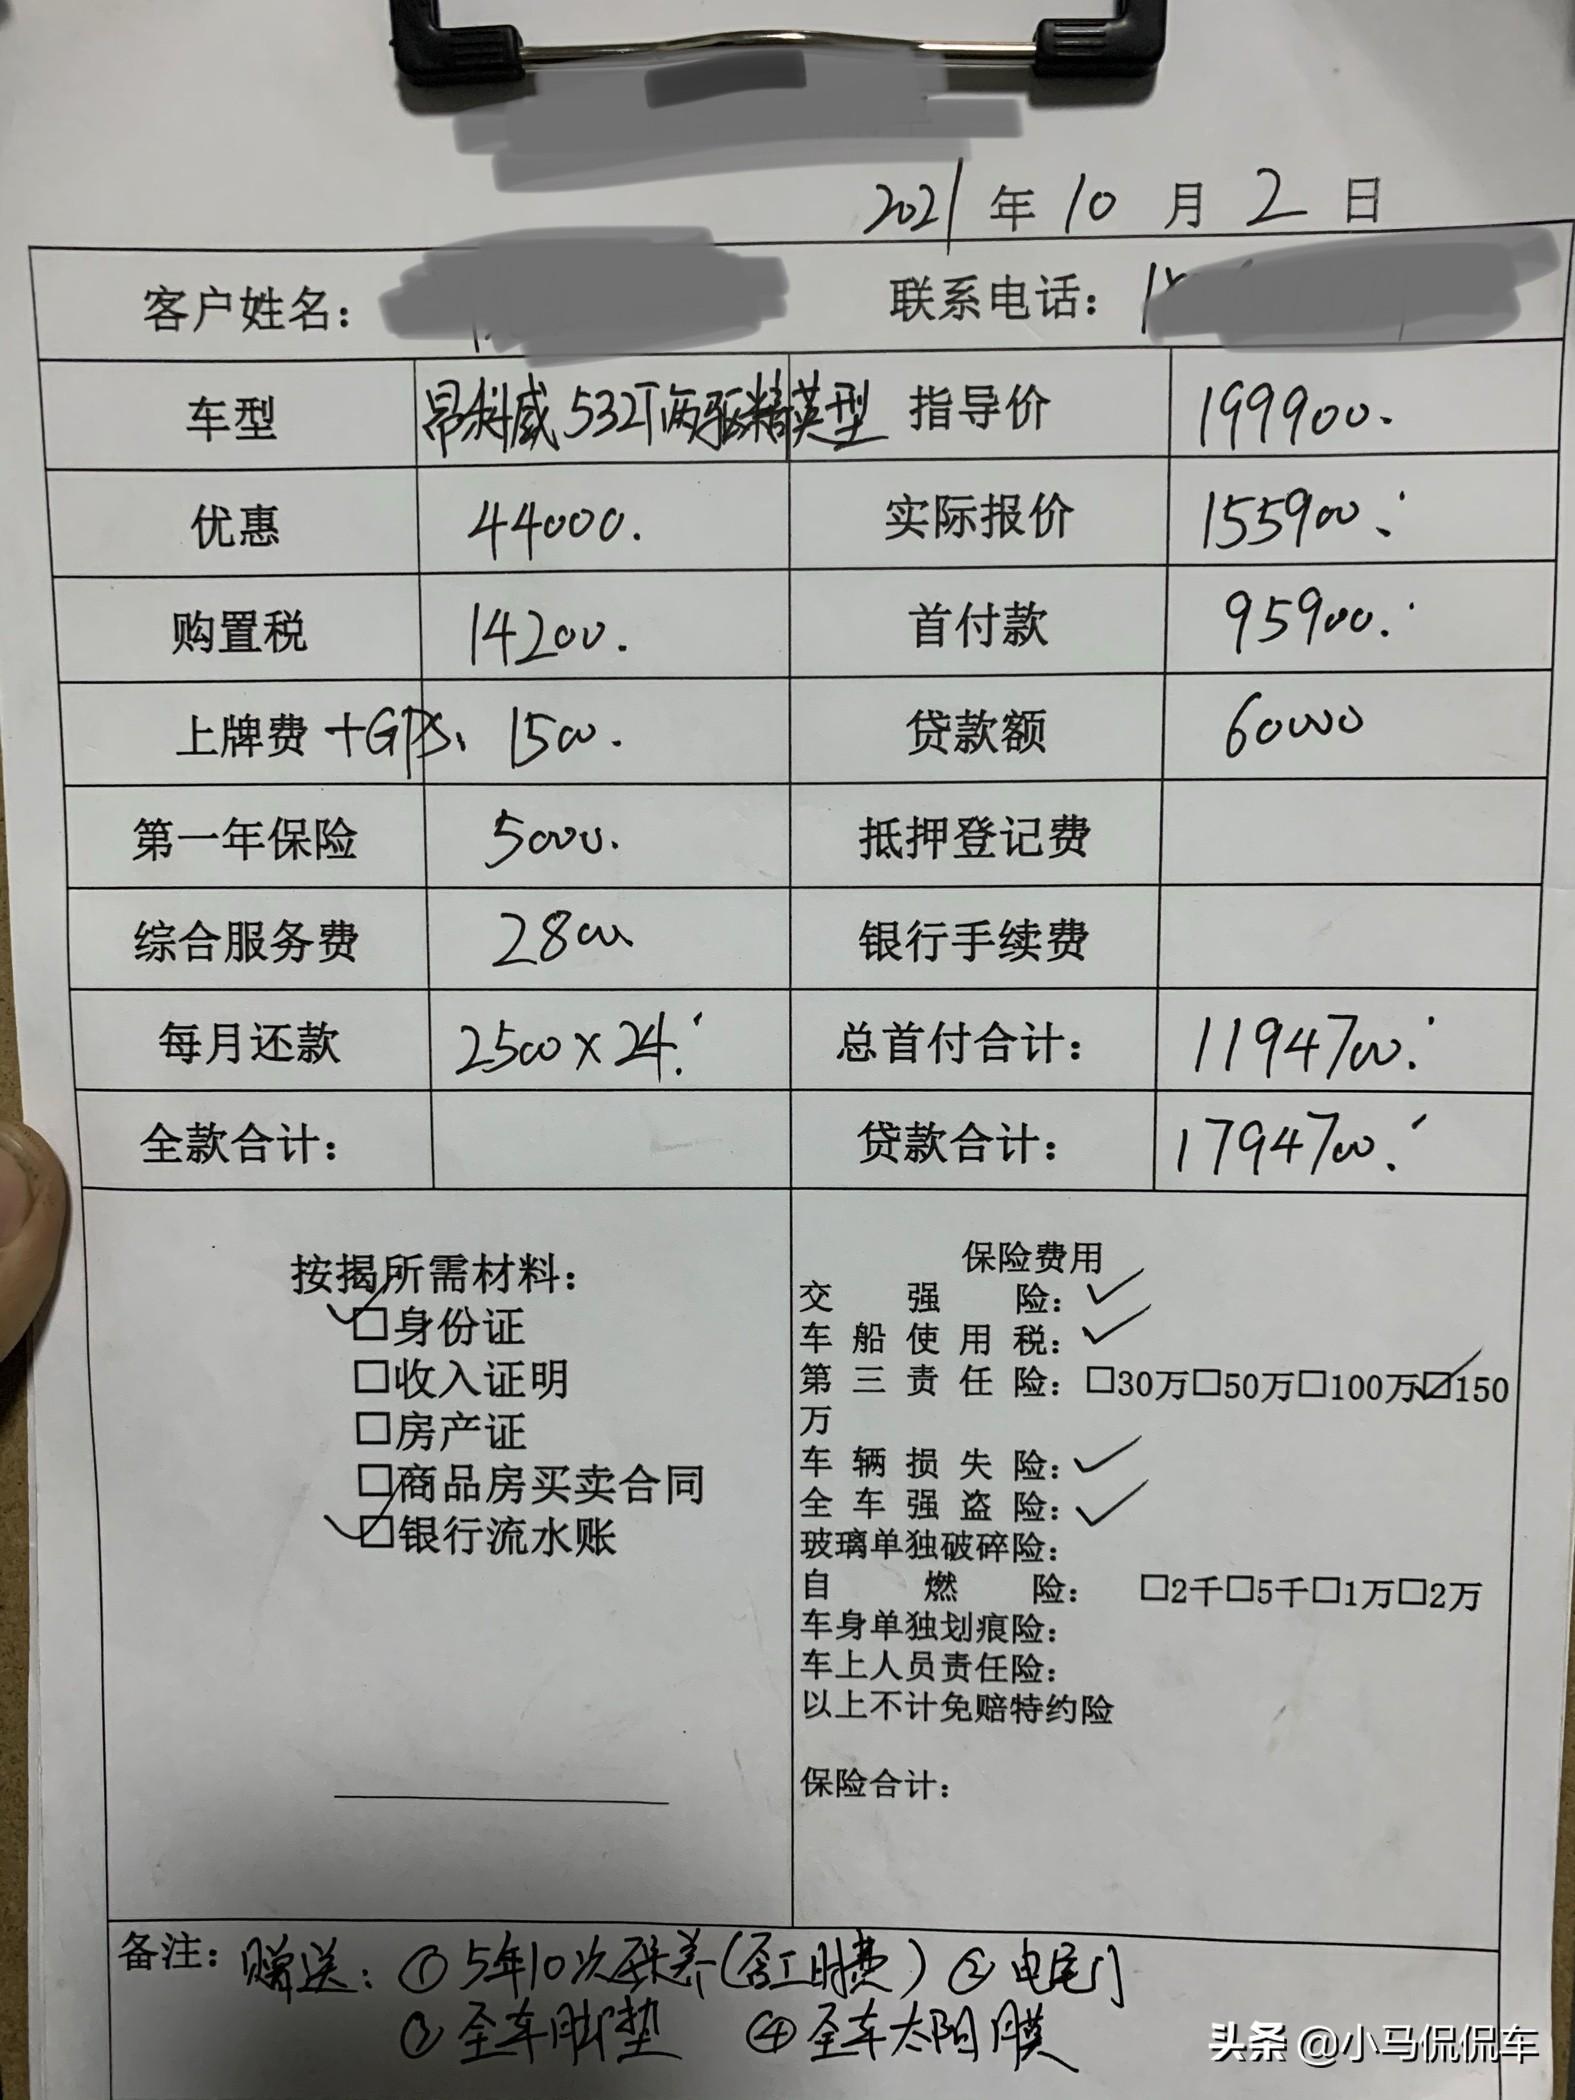 2021年10月2日
客户姓名： 联系电话：
车型 昂科威532T两驱精英型 指导价 199900.
优惠 44000. 实际报价 155900.
购置税 14200. 首付款 95900.
上牌费+GPS、 1500. 贷款额 60000
第一年保险 5000. 抵押登记费
综合服务费 2800 银行手续费
每月还款 2500×24. 总首付合计： 1194700.
全款合计： 贷款合计： 1794700.
按揭所需材料：
□身份证
□收入证明
□房产证
□商品房买卖合同
□银行流水账
保险费用
交强险：✓
车船使用税：✓
第三责任险：□30万□50万□100万☑150
万
车辆损失险：✓
全车强盗险：✓
玻璃单独破碎险：
自燃险： □2千□5千□1万□2万
车身单独划痕险：
车上人员责任险：
以上不计免赔特约险
保险合计：
备注：赠送：①5年10次保养(含工时费) ②电尾门
③全车脚垫 ④全车太阳膜
头条 @小马侃侃车